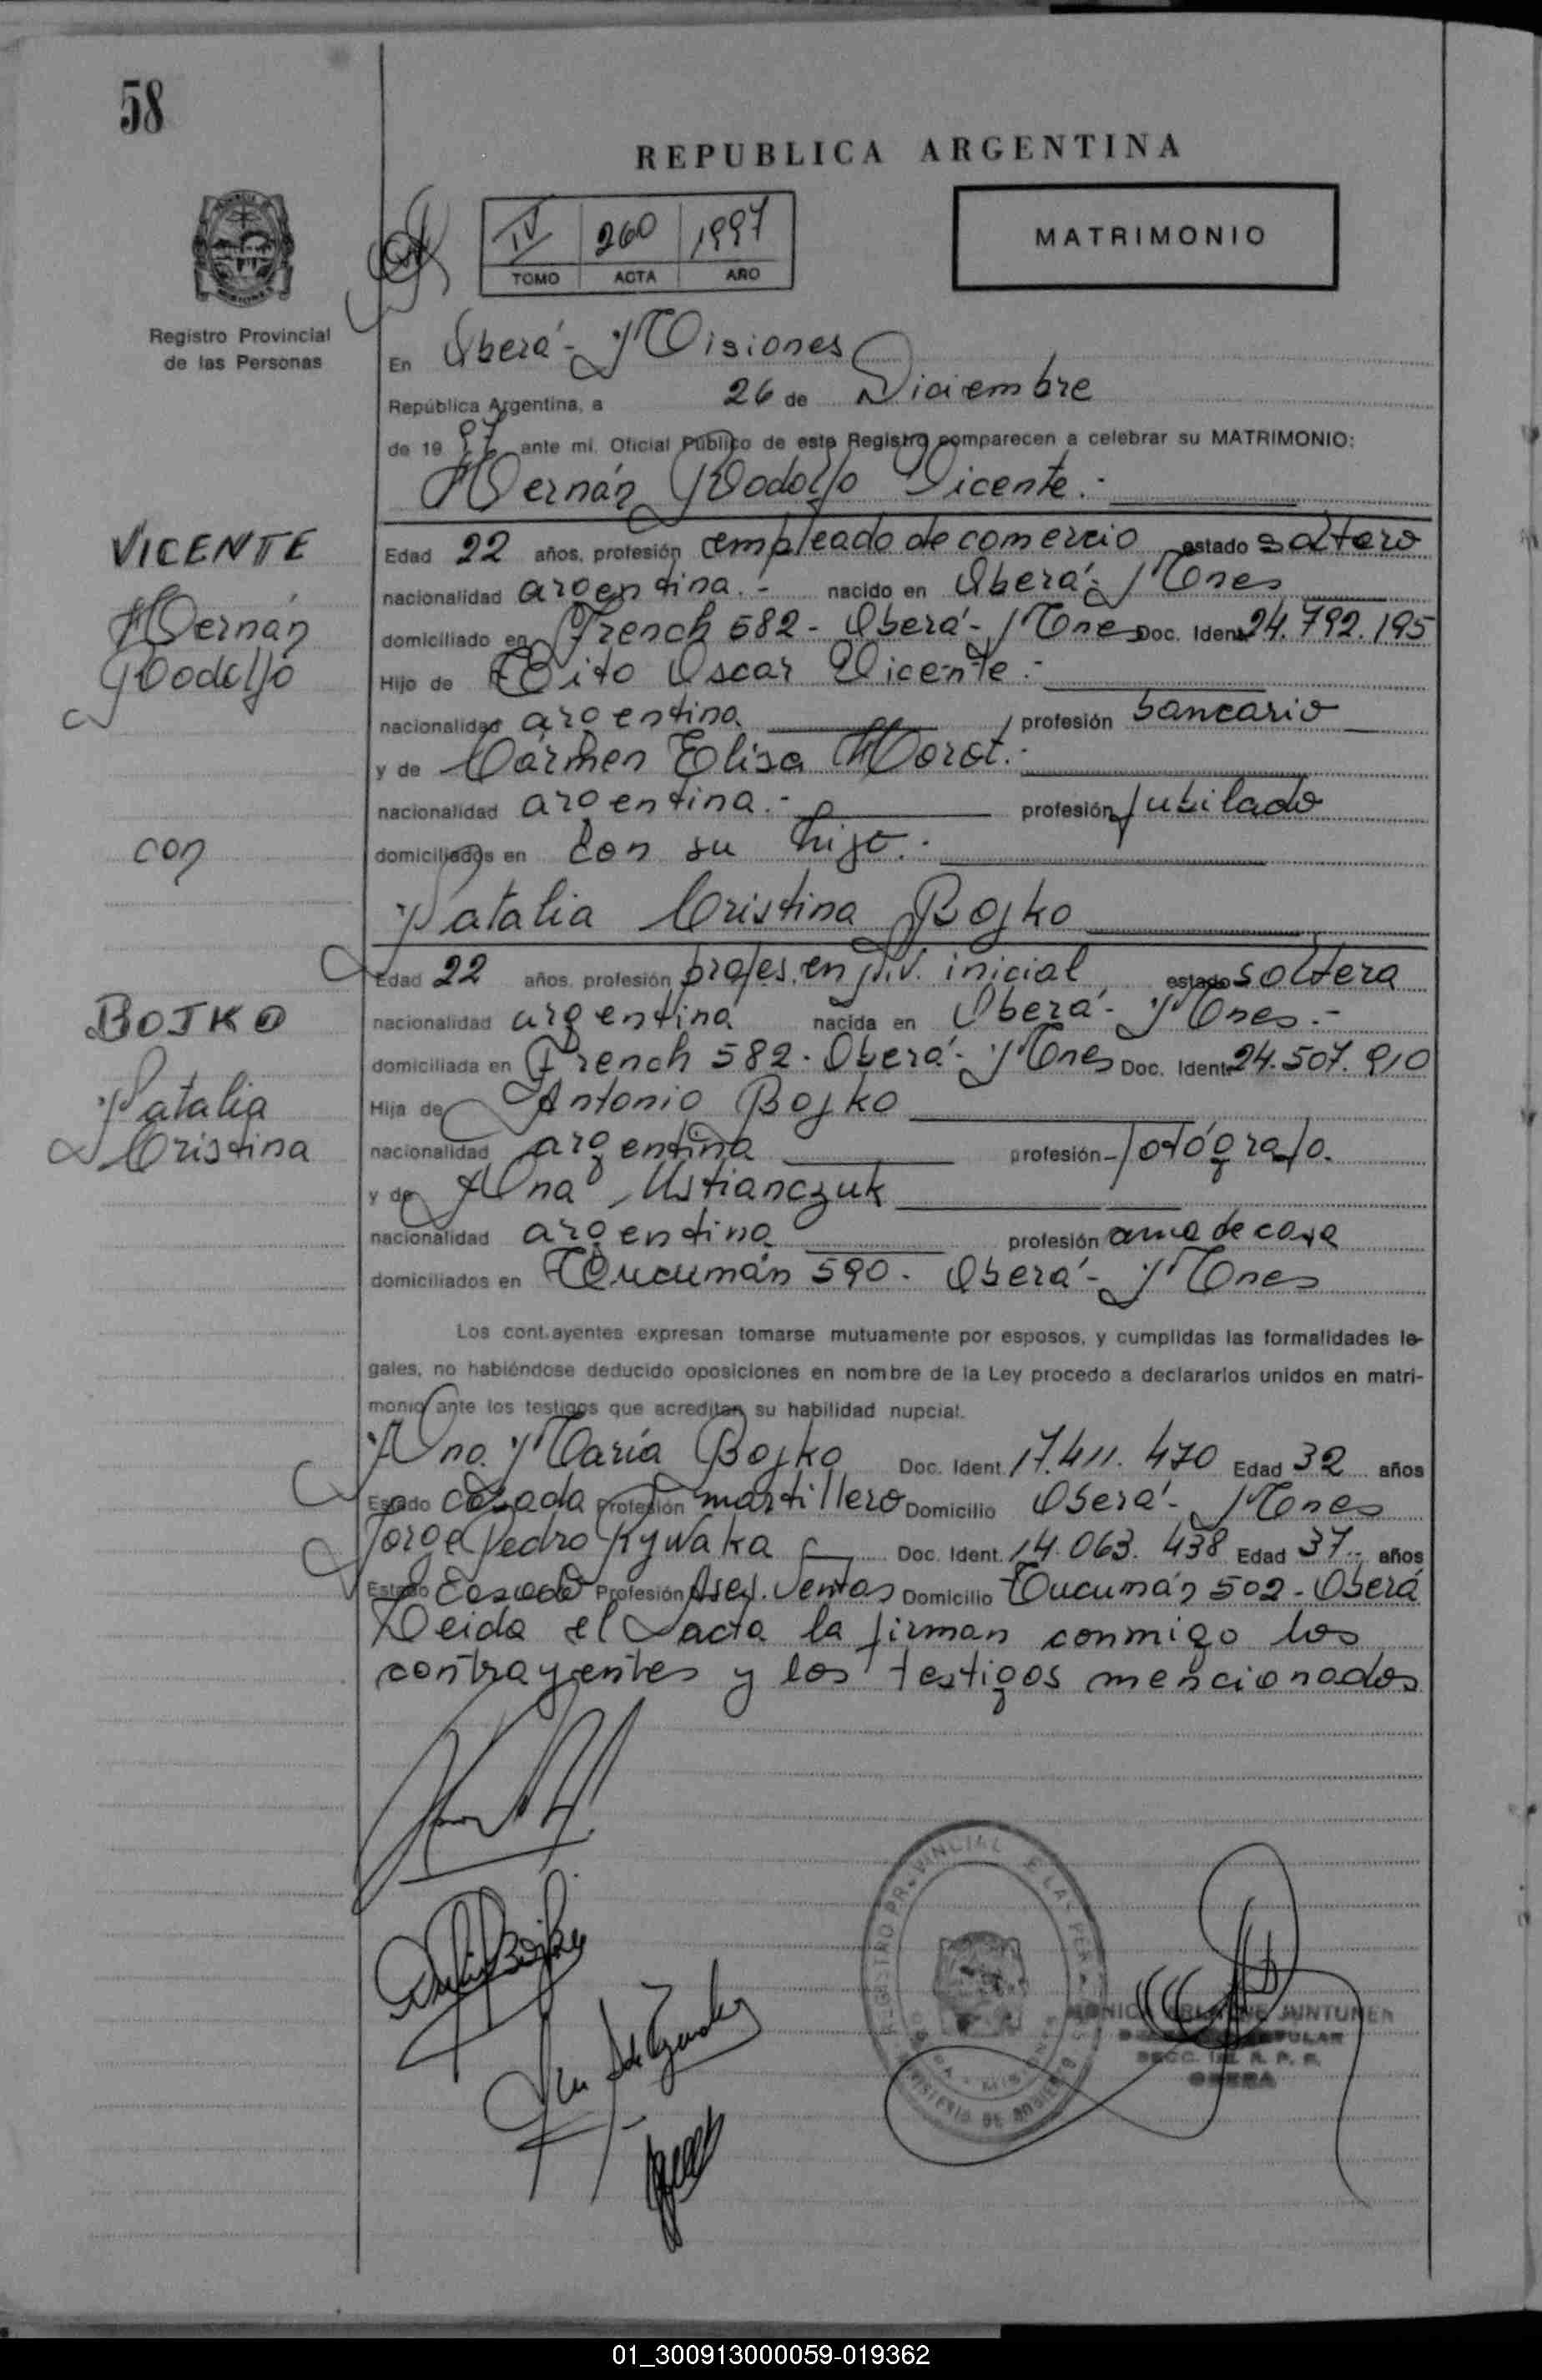 58
REPUBLICA ARGENTINA
IV 260 1997
TOMO ACTA AÑO
MATRIMONIO
Registro Provincial
de las Personas
En Oberá - Misiones
República Argentina, a 26 de Diciembre
de 19 97 ante mi, Oficial Público de este Registro comparecen a celebrar su MATRIMONIO:
Hernán Rodolfo Vicente.-
VICENTE
Hernán
Rodolfo
Edad 22 años, profesión empleado de comercio estado soltero
nacionalidad argentina.- nacido en Oberá - Mnes
domiciliado en French 582 - Oberá - Mnes Doc. Ident. 24.792.195
Hijo de Tito Oscar Vicente.-
nacionalidad argentina profesión bancario
y de Carmen Elisa Morot.-
nacionalidad argentina.- profesión Jubilado
domiciliados en Con su hijo.-
con
Natalia Cristina Bojko
BOJKO
Natalia
Cristina
Edad 22 años, profesión profes. en Niv. inicial estado soltera
nacionalidad argentina nacida en Oberá - Mnes.-
domiciliada en French 582 - Oberá - Mnes Doc. Ident. 24.507.910
Hija de Antonio Bojko
nacionalidad argentina profesión fotógrafo.
y de Ana Ustianczuk
nacionalidad argentina profesión ama de casa
domiciliados en Tucumán 590 - Oberá - Mnes
Los cont.ayentes expresan tomarse mutuamente por esposos, y cumplidas las formalidades le-
gales, no habiéndose deducido oposiciones en nombre de la Ley procedo a declararlos unidos en matri-
monio ante los testigos que acreditan su habilidad nupcial.
Ana María Bojko Doc. Ident. 17.411.470 Edad 32 años
Estado casada Profesión martillero Domicilio Oberá - Mnes
Jorge Pedro Kywaka Doc. Ident. 14.063.438 Edad 37 años
Estado Casado Profesión Ases. Ventas Domicilio Tucumán 502 - Oberá
Leida el acta la firman conmigo los
contrayentes y los testigos mencionados
REGISTRO PROVINCIAL DE LAS PERSONAS
JUNTUNEN
TITULAR
SECC. R. P. P.
OBERA
01_300913000059-019362